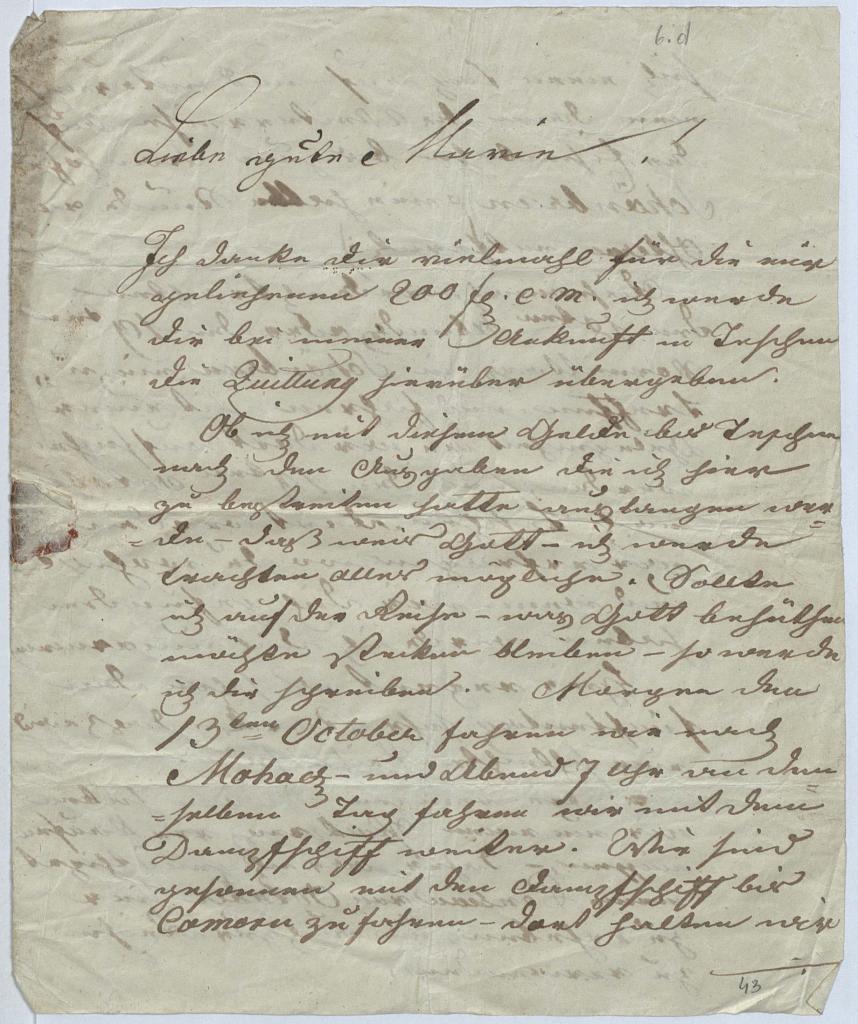 6.d
Liebe gute Marie!
Ich danke dir vielmahl für die mir
geliehenen 200 f. C. M. ich werde
dir bei meiner Ankunft in Teschen
die Quittung hierüber übergeben.
Ob ich mit diesem Gelde bis Teschen
nach den Ausgaben die ich hier
zu bestreiten hatte auslangen wer=
=de – daß weis Gott – ich werde
trachten alles mögliche. Sollte
ich auf der Reise – was Gott behüthen
möchte stecken bleiben – so werde
ich dir schreiben. Morgen den
13ten October fahren wir nach
Mohacz – und Abend 7 Uhr an dem=
=selben Tag fahren wir mit dem
Dampfschiff weiter. Wir sind
gesonnen mit den Dampfschiff bis
Comorn zu fahren – dort halten wir
43